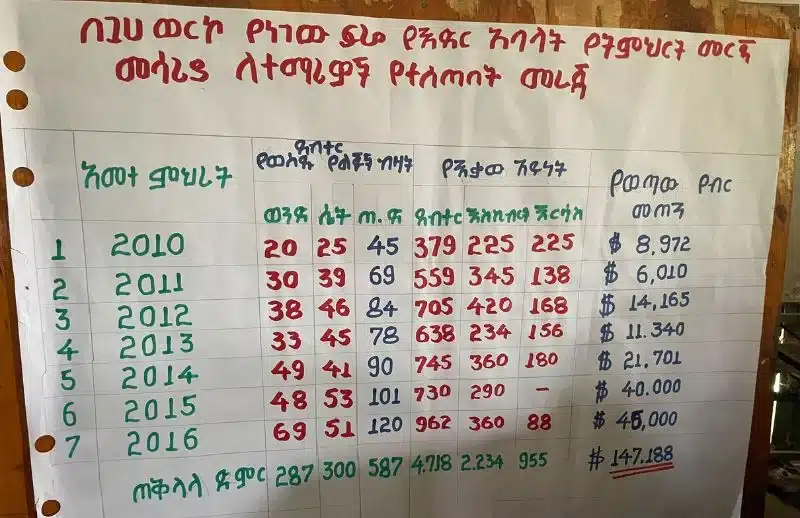 በጋህ ወርኮ የነገው ፍሬ የእድር አባላት የትምህርት መርጃ
መሳሪያ ለተማሪዎች የተሰጠበት መረጃ
አመተ ምህረት ደብተር የወሰዱ የልጆች ብዛት የእቃው አይነት የወጣው የብር መጠን
ወንድ ሴት ጠ.ድ ደብተር እስክብሪቶ እርሳስ
1 2010 20 25 45 379 225 225 $ 8,972
2 2011 30 39 69 559 345 138 $ 6,010
3 2012 38 46 84 705 420 168 $ 14,165
4 2013 33 45 78 638 234 156 $ 11.340
5 2014 49 41 90 745 360 180 $ 21,701
6 2015 48 53 101 730 290 – $ 40.000
7 2016 69 51 120 962 360 88 $ 45,000
ጠቅላላ ድምር 287 300 587 4.718 2.234 955 $ 147.188